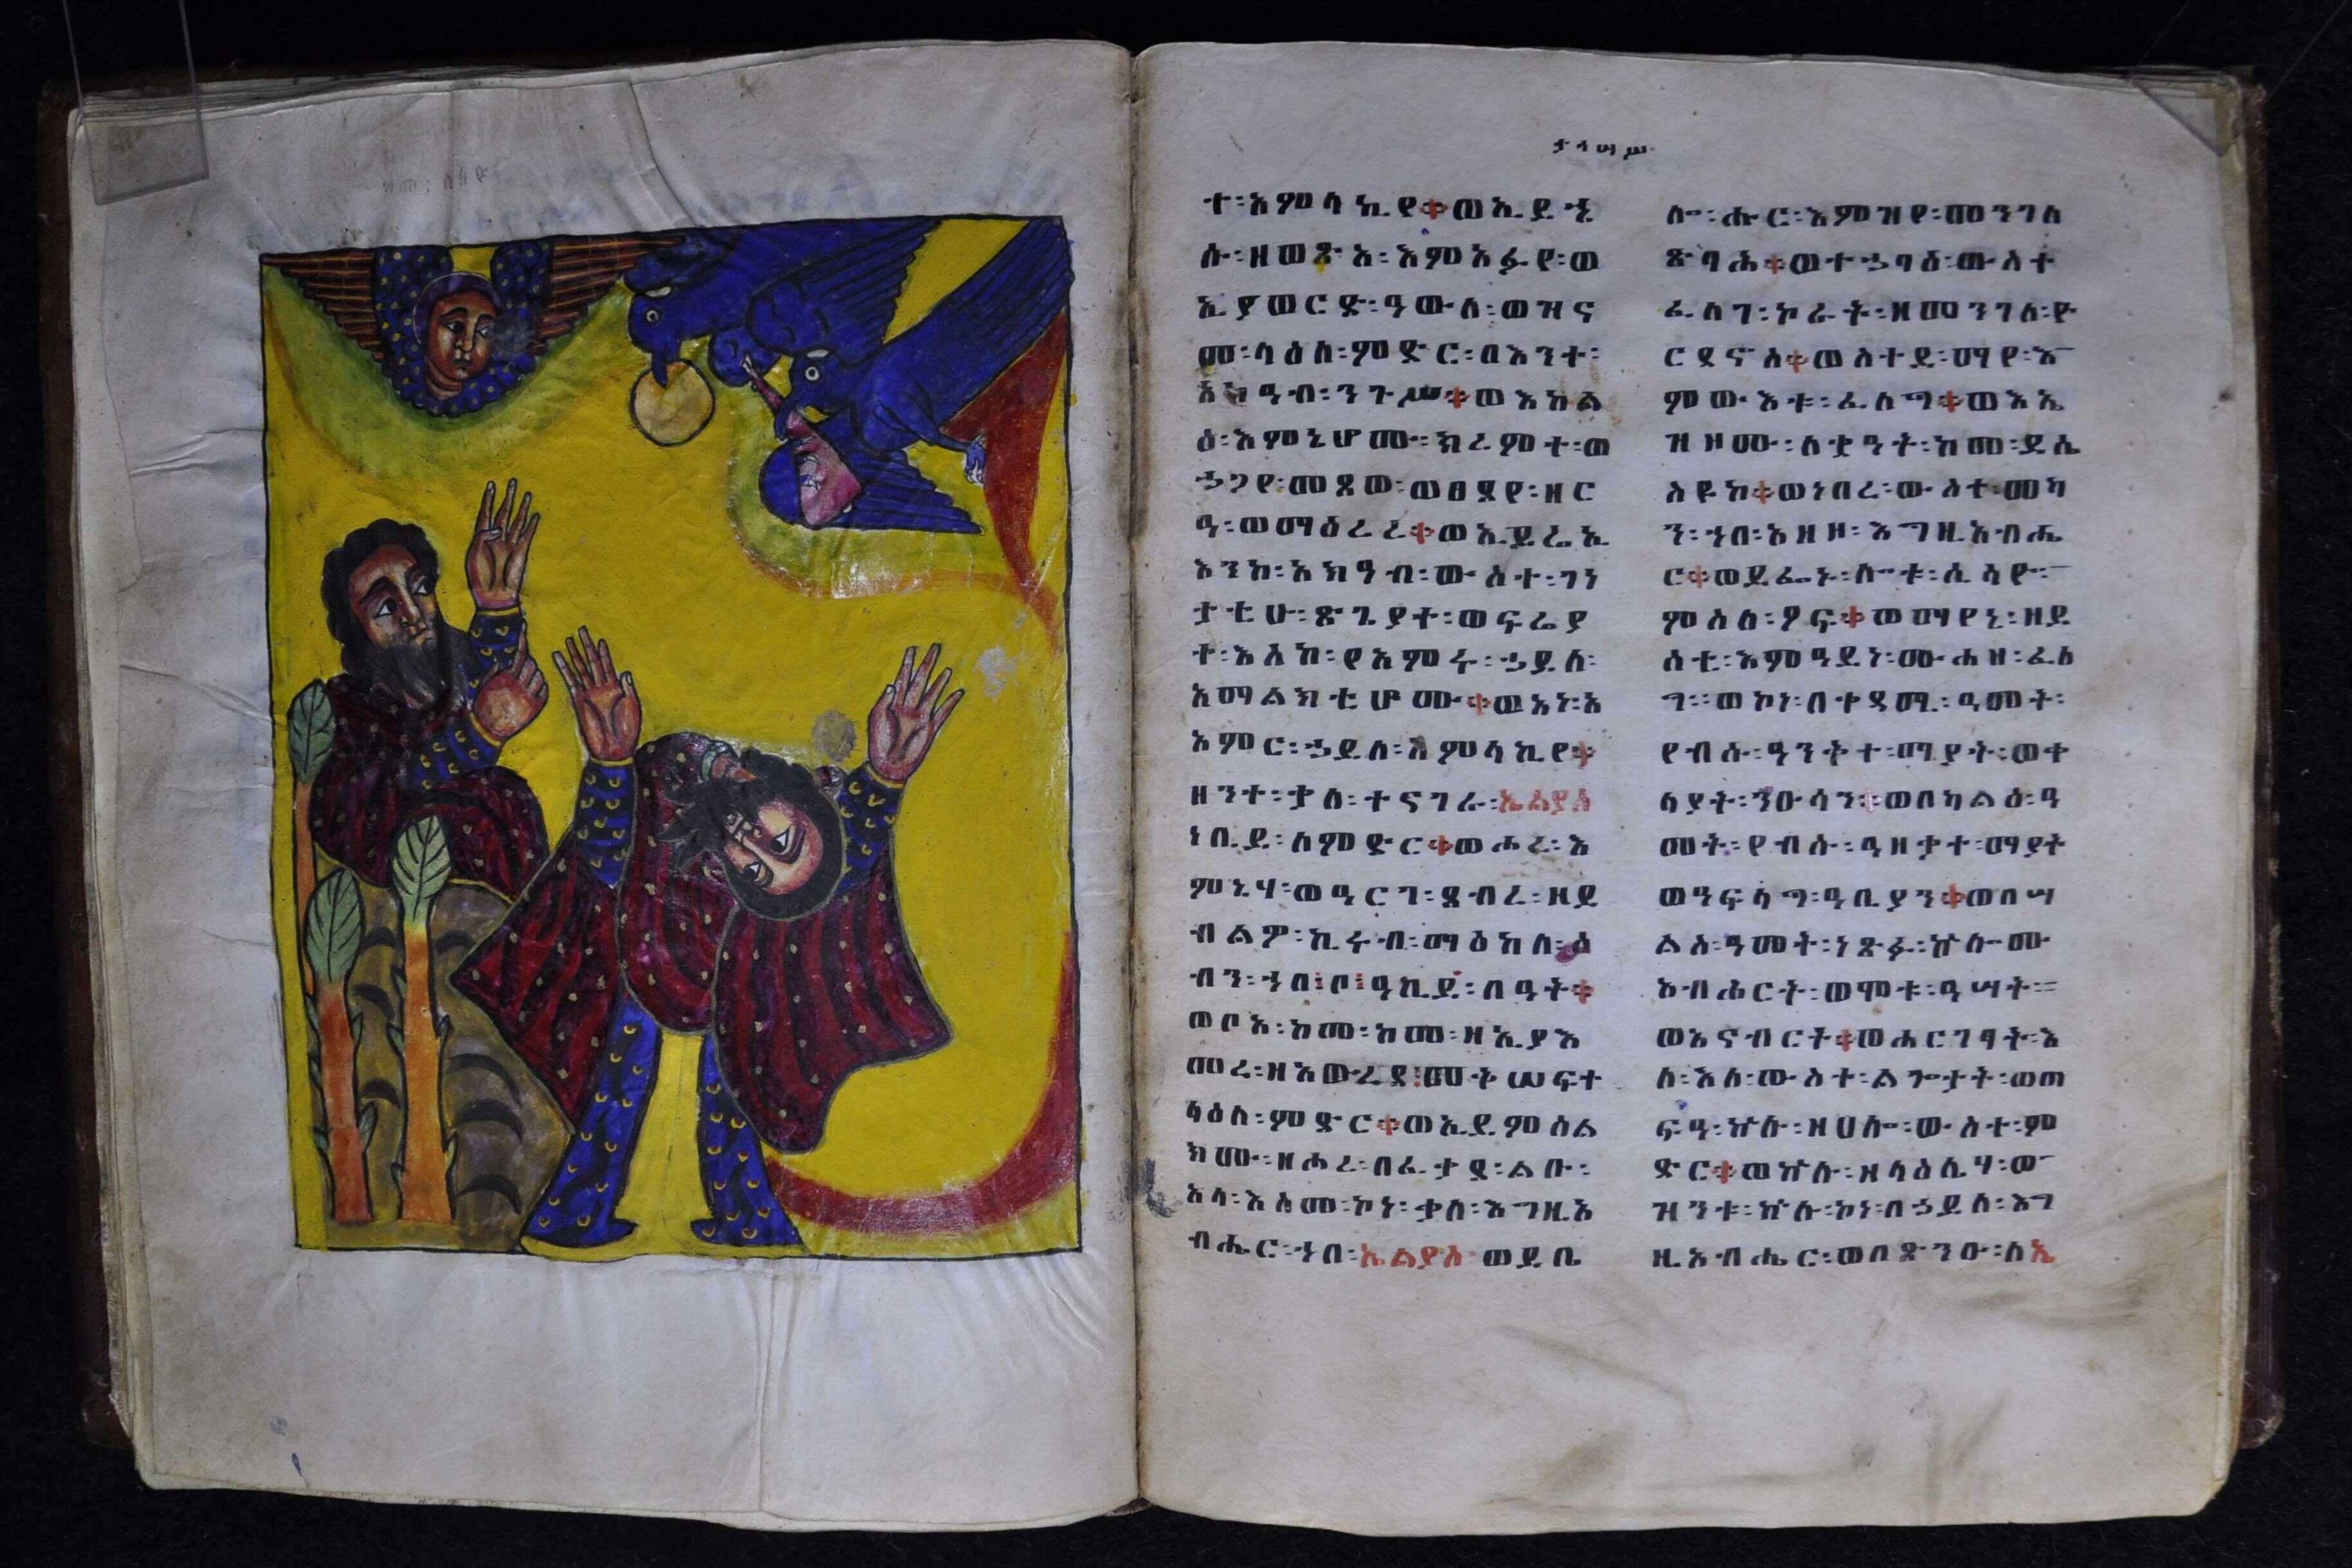 ታኅሣሥ
ተ፡እምሳኪየ፨ወኢይኄ
ሱ፡ዘወጽአ፡እምአፉየ፡ወ
ኢያወርድ፡ዓውሎ፡ወዝና
መ፡ላዕለ፡ምድር፡በእንተ፡
አክዓብ፡ንጉሥ፨ወእከል
ዕ፡እምኔሆሙ፡ክረምተ፡ወ
ኃጋየ፡መጸው፡ወፀደየ፡ዘር
ዓ፡ወማዕረረ፨ወኢይሬኢ
እንከ፡አክዓብ፡ውስተ፡ገነ
ታቲሁ፡ጽጌያተ፡ወፍሬያ
ተ፡እስከ፡የአምሩ፡ኃይለ፡
አማልክቲሆሙ፨ወአነ፡አ
አምር፡ኃይለ፡አምላኪየ፨
ዘንተ፡ቃለ፡ተናገራ፡ኤልያስ
ነቢይ፡ለምድር፨ወሖረ፡እ
ምኔሃ፡ወዓርገ፡ደብረ፡ዘይ
ብልዎ፡ኪሩብ፡ማዕከለ፡ዕ
ብን፡ኀበ፡ቦ፡ዓኪይ፡በዓት፨
ወቦአ፡ከመ፡ከመ፡ዘኢያእ
መረ፡ዘአውረደ፡መትሠፍተ
ላዕለ፡ምድር፨ወኢይምሰል
ክሙ፡ዘሖረ፡በፈታደ፡ልቡ፡
አላ፡እስመ፡ኮነ፡ቃለ፡እግዚአ
ብሔር፡ኀበ፡ኤልያስ፡ወይቤ
ሎ፡ሑር፡እምዝየ፡መንገለ
ጽባሕ፨ወተኃባዕ፡ውስተ
ፈለገ፡ኮራት፡ዘመንገለ፡ዮ
ርዳኖስ፨ወስተይ፡ማየ፡እ
ምውእቱ፡ፈለግ፨ወእኤ
ዝዞሙ፡ለቋዓት፡ከመ፡ይሴ
ስዩከ፨ወነበረ፡ውስተ፡መካ
ን፡ኀበ፡አዘዞ፡እግዚአብሔ
ር፨ወይፌኑ፡ሎቱ፡ሲሳዮ፡
ምስለ፡ዖፍ፨ወማየኒ፡ዘይ
ሰቲ፡እምዓይነ፡ሙሐዘ፡ፈለ
ግ፡፡ወኮነ፡በቀዳሚ፡ዓመት፡
የብሱ፡ዓንቅተ፡ማያት፡ወቀ
ላያት፡ንዑሳን፡ወበካልዕ፡ዓ
መት፡የብሱ፡ዓዘቃተ፡ማያት
ወዓፍላግ፡ዓቢያን፨ወበሣ
ልስ፡ዓመት፡ነጽፉ፡ኵሎሙ
አብሕርት፡ወሞቱ፡ዓሣት፡፡
ወአናብርት፨ወሐርገፃት፡እ
ለ፡እለ፡ውስተ፡ልጐታት፡ወጠ
ፍዓ፡ኵሉ፡ዘሀሎ፡ውስተ፡ም
ድር፨ወኵሉ፡ዘላዕሌሃ፡ወ
ዝንቱ፡ኵሉ፡ኮነ፡በኃይለ፡እግ
ዚአብሔር፡ወበጽንዑ፡ለኤ